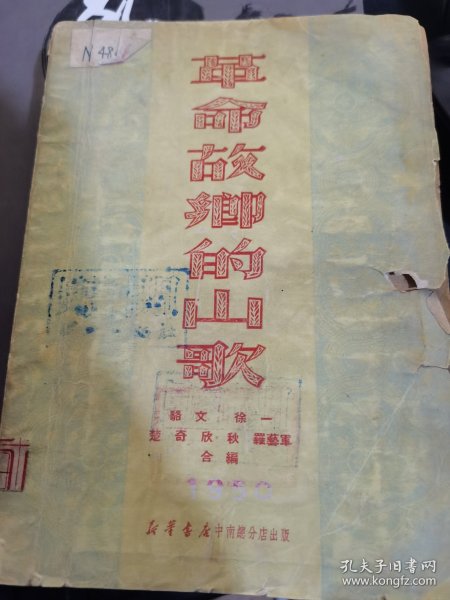 N 48
革命故鄉的山歌
駱文 徐一
楚奇 欣秋 羅藝軍
合編
1950
新華書店中南總分店出版
孔夫子旧书网
www.kongfz.com